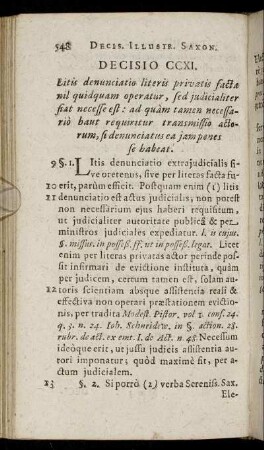 548 DECIS. ILLUSTR. SAXON.
DECISIO CCXI.
Litis denunciatio literis privatis facta
nil quidquam operatur, sed judicialiter
fiat necesse est: ad quàm tamen necessa-
riò haut requiritur transmissio acto-
rum, si denunciatus ea jam penes
se habeat.
9 §. 1. LItis denunciatio extrajudicialis si-
ve oretenus, sive per literas facta fu
10 erit, parùm efficit. Postquam enim (1) litis
11 denunciatio est actus judicialis, non potest
non necessariùm ejus haberi requisitum, ut
judicialiter autoritate publicâ & per
ministros judiciales expediatur. l. is cujus.
§. missus. in possess. ff. ut in possess. legat. Licet
enim per literas privatas actor perinde pos-
sit infirmari de evictione instituta, quàm
per judicem, cernum tamen est, solam au-
12 toris scientiam absque assistentia reali &
effectiva non operari præstationem evictio-
nis, per tradita Modest. Pistor. vol 1. cons. 24.
q. 3. n. 24. Joh. Schneidew. in §. action. 28.
rubr. de act. ex emt. l. de Act. n. 48. Necessium
ideòque erit, ut jussu judicis assistentia au-
tori imponatur; quòd maximè fit, per ac-
tum judicialem.
13 §. 2. Si porrò (2) verba Sereniss. Sax.
Ele-